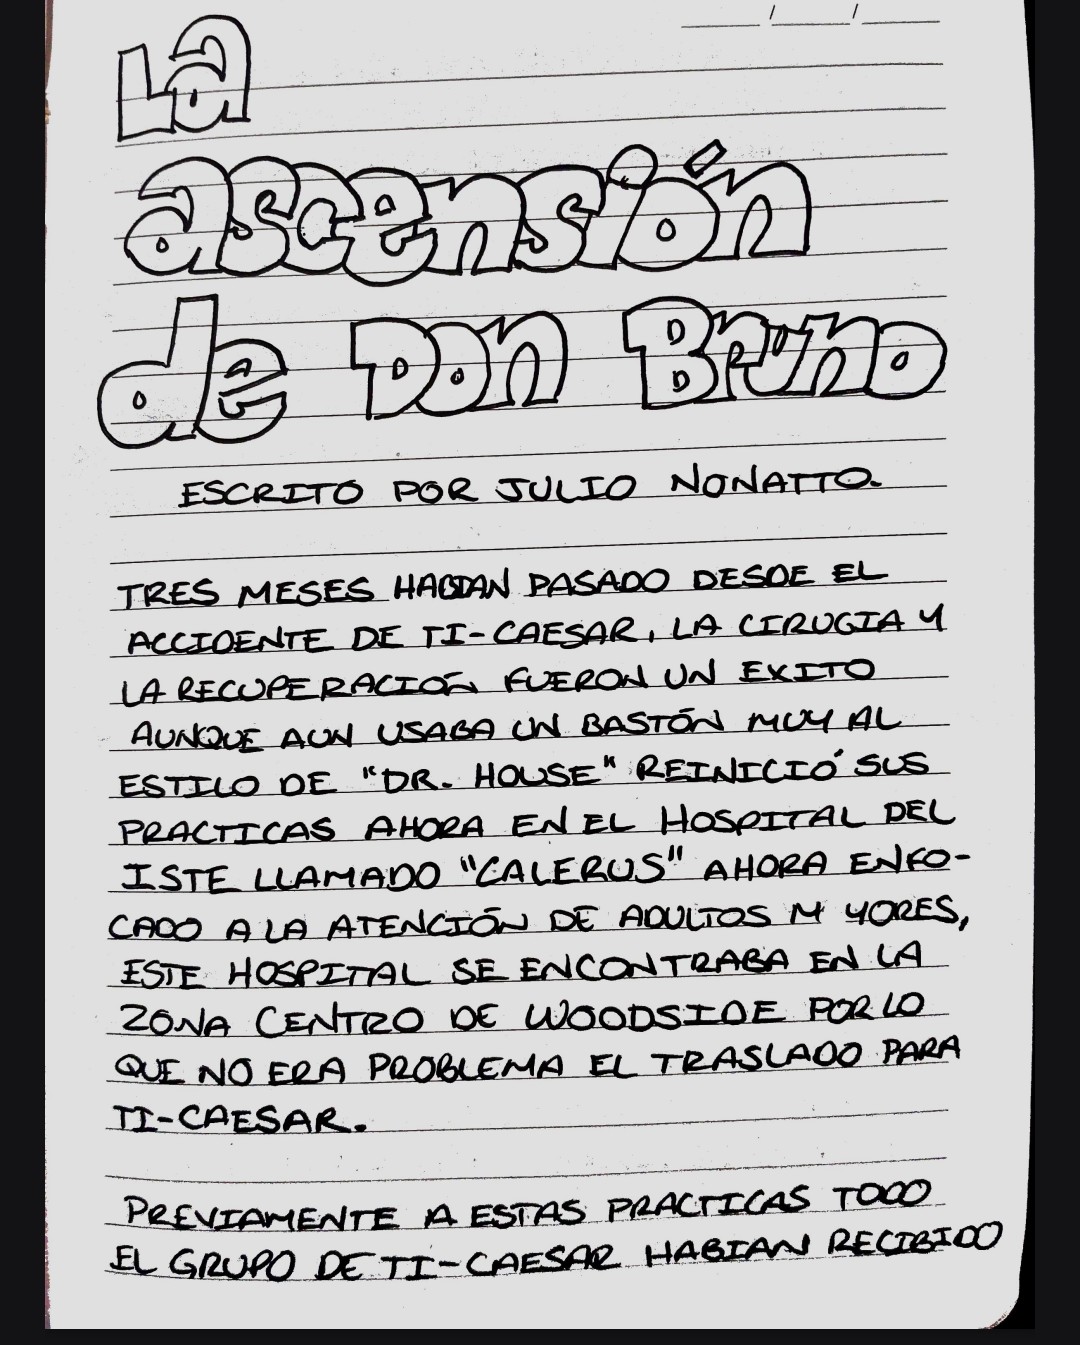 La
ascensión
de Don Bruno
ESCRITO POR JULIO NONATTO.
TRES MESES HABIAN PASADO DESDE EL
ACCIDENTE DE TI-CAESAR, LA CIRUGIA Y
LA RECUPERACIÓN FUERON UN EXITO
AUNQUE AUN USABA UN BASTÓN MUY AL
ESTILO DE "DR. HOUSE" REINICIÓ SUS
PRACTICAS AHORA EN EL HOSPITAL DEL
ISTE LLAMADO "CALERUS" AHORA ENFO-
CADO A LA ATENCIÓN DE ADULTOS M YORES,
ESTE HOSPITAL SE ENCONTRABA EN LA
ZONA CENTRO DE WOODSIDE POR LO
QUE NO ERA PROBLEMA EL TRASLADO PARA
TI-CAESAR.
PREVIAMENTE A ESTAS PRACTICAS TODO
EL GRUPO DE TI-CAESAR HABIAN RECIBIDO